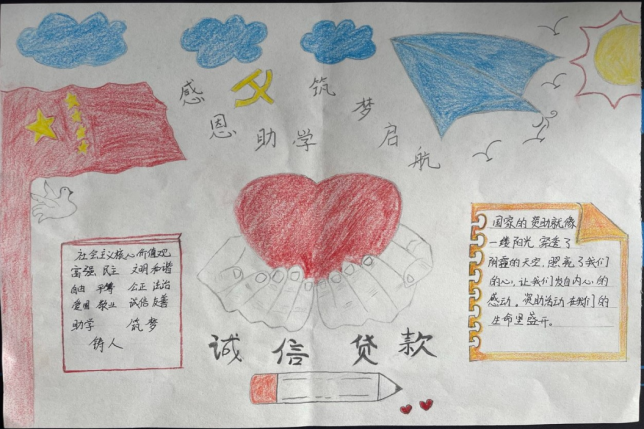 感恩助学 筑梦启航
社会主义核心价值观
富强 民主 文明 和谐
自由 平等 公正 法治
爱国 敬业 诚信 友善
助学 筑梦
铸人
国家的资助就像
一缕阳光 穿走了
阴霾的天空,照亮了我们
的心,让我们发自内心的
感动。资助活动在我们的
生命里盛开。
诚信贷款